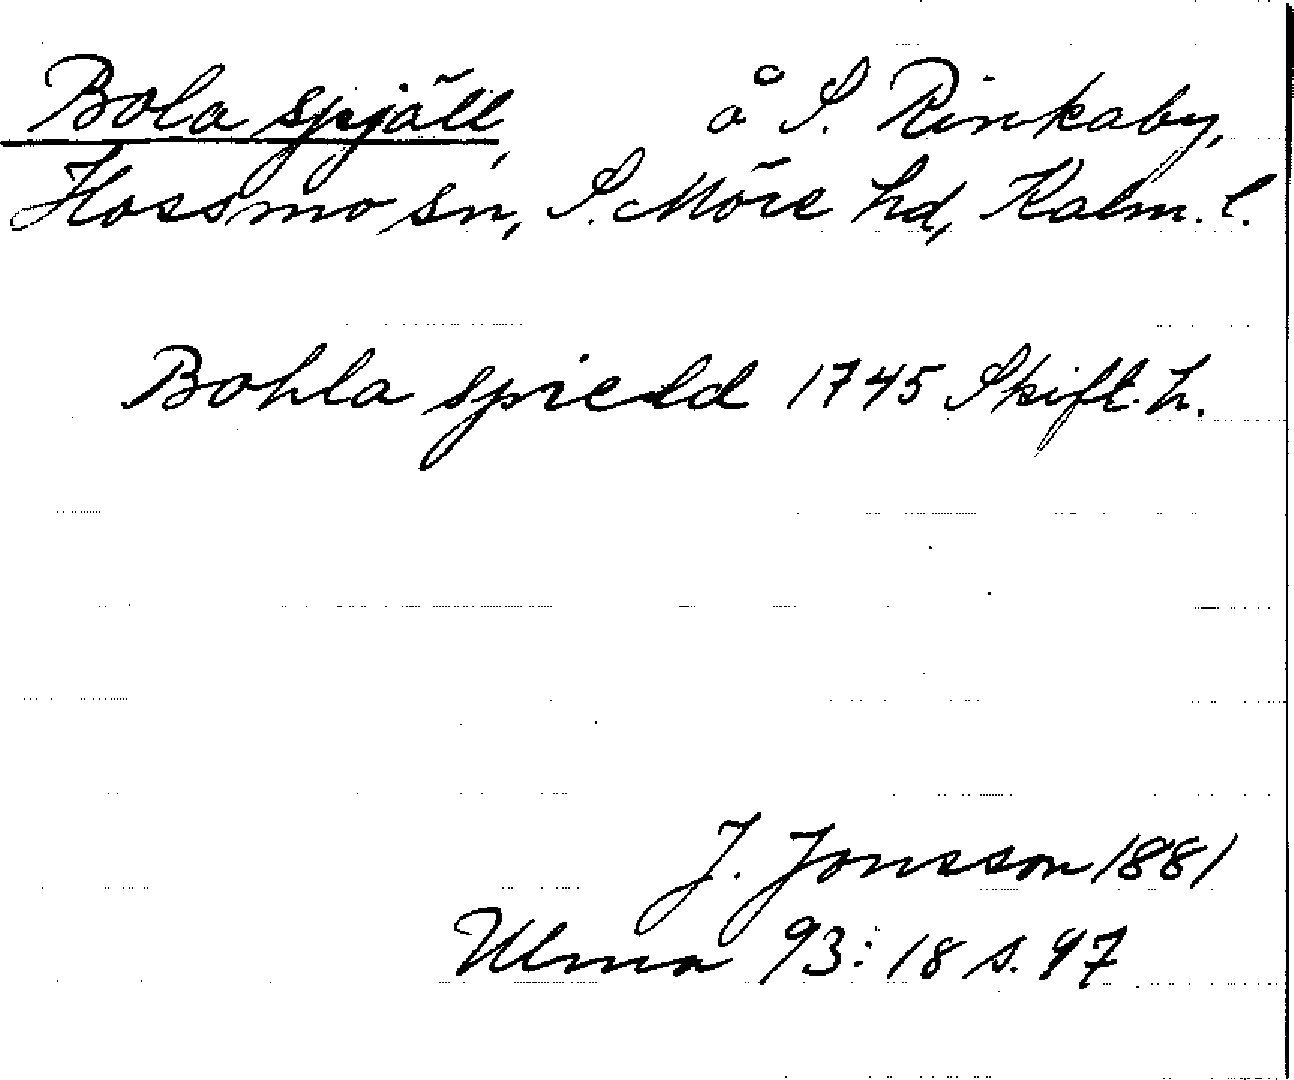 Bola spjäll, å S. Rinkaby,
Hossmo sn, S. Möre hd, Kalm. l.
Bohla spield 1745 Skift. h.
J. Jonsson 1881
Ulma 93:18 s. 97